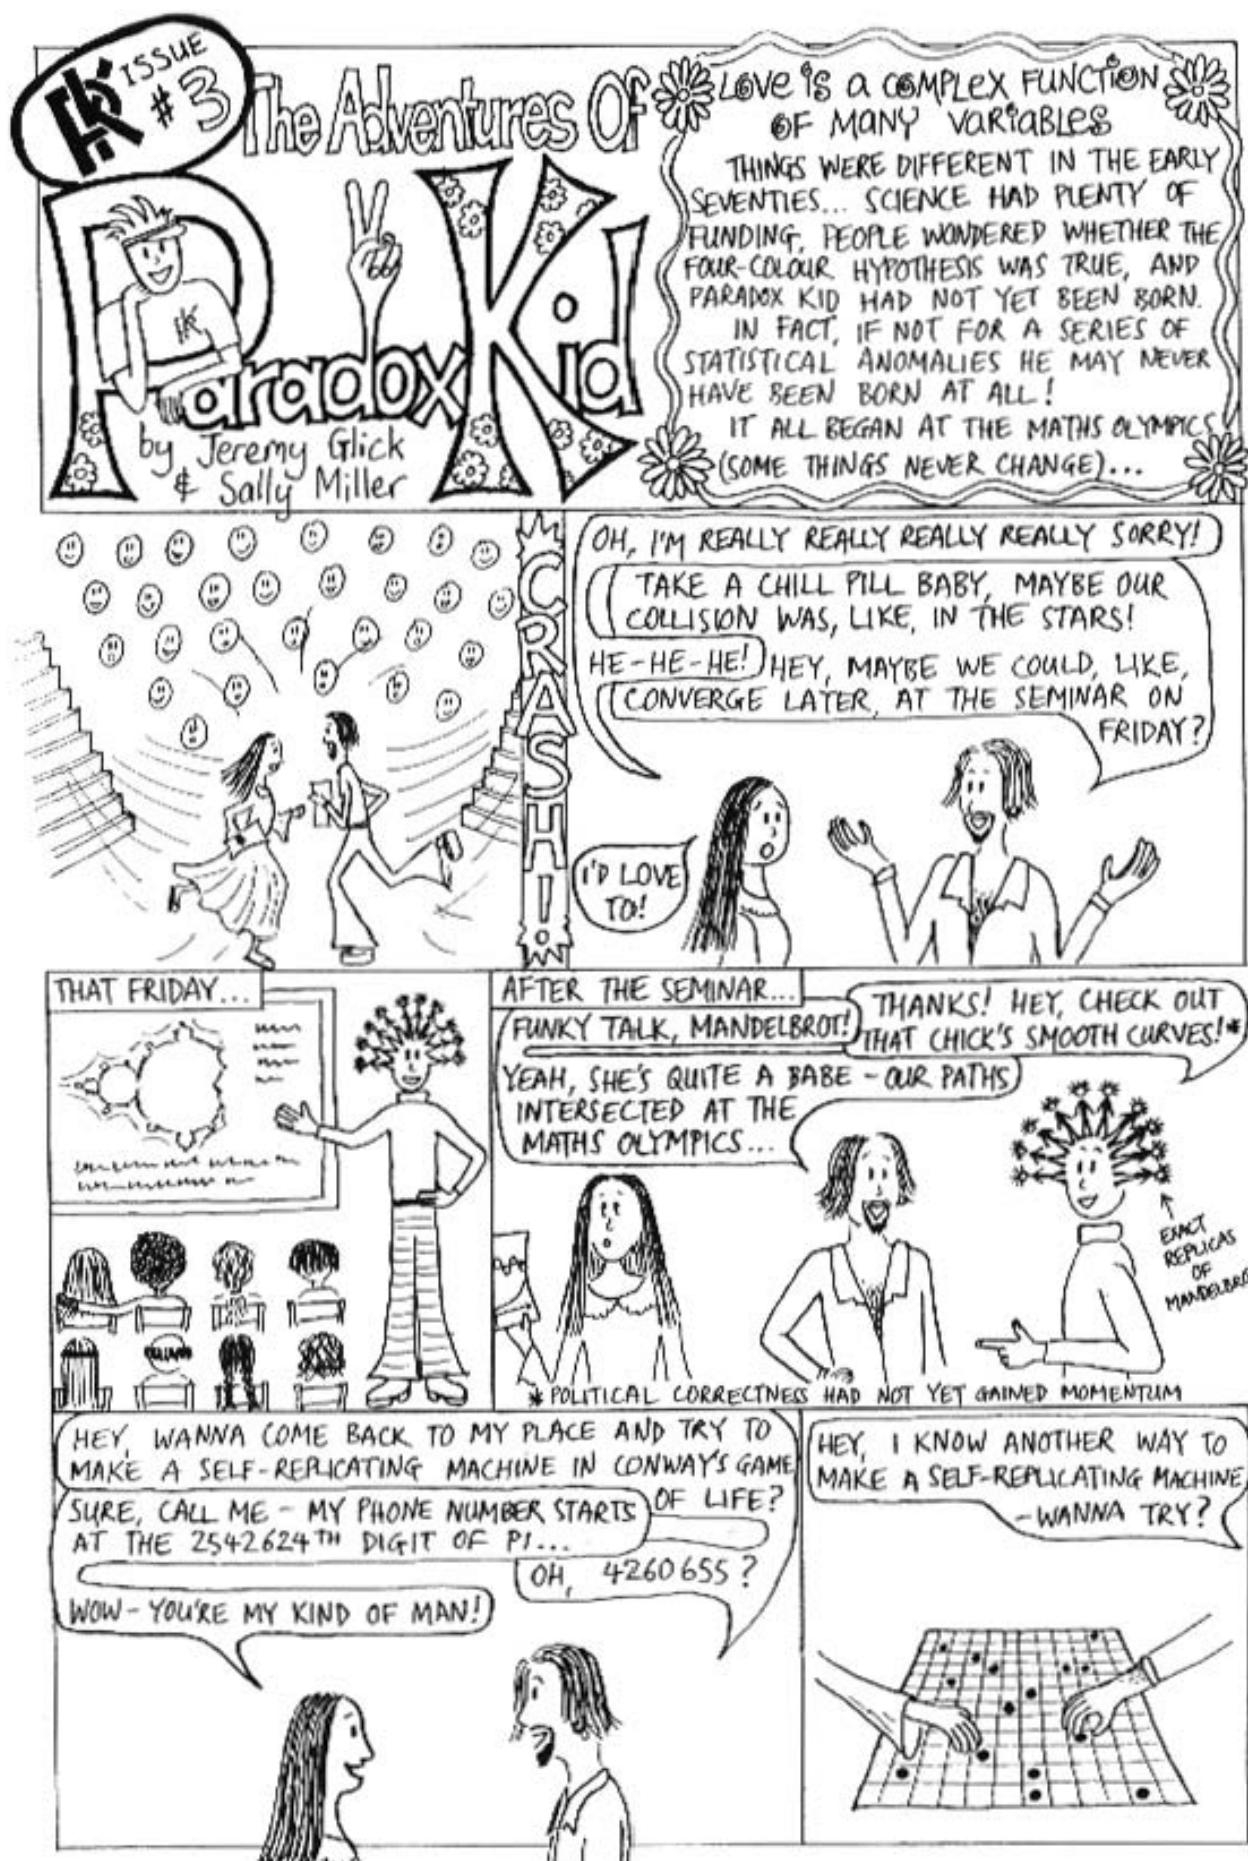 ISSUE
#3
The Adventures Of
Paradox Kid
by Jeremy Glick
& Sally Miller
LOVE IS A COMPLEX FUNCTION
OF MANY VARIABLES
THINGS WERE DIFFERENT IN THE EARLY
SEVENTIES... SCIENCE HAD PLENTY OF
FUNDING, PEOPLE WONDERED WHETHER THE
FOUR-COLOUR HYPOTHESIS WAS TRUE, AND
PARADOX KID HAD NOT YET BEEN BORN.
IN FACT, IF NOT FOR A SERIES OF
STATISTICAL ANOMALIES HE MAY NEVER
HAVE BEEN BORN AT ALL!
IT ALL BEGAN AT THE MATHS OLYMPICS
(SOME THINGS NEVER CHANGE)...
CRASH!
OH, I'M REALLY REALLY REALLY REALLY SORRY!
TAKE A CHILL PILL BABY, MAYBE OUR
COLLISION WAS, LIKE, IN THE STARS!
HE-HE-HE!
HEY, MAYBE WE COULD, LIKE,
CONVERGE LATER, AT THE SEMINAR ON
FRIDAY?
I'D LOVE
TO!
THAT FRIDAY...
AFTER THE SEMINAR...
FUNKY TALK, MANDELBROT!
THANKS! HEY, CHECK OUT
THAT CHICK'S SMOOTH CURVES!*
YEAH, SHE'S QUITE A BABE - OUR PATHS
INTERSECTED AT THE
MATHS OLYMPICS...
EXACT
REPLICAS
OF
MANDELBRO
* POLITICAL CORRECTNESS HAD NOT YET GAINED MOMENTUM
HEY, WANNA COME BACK TO MY PLACE AND TRY TO
MAKE A SELF-REPLICATING MACHINE IN CONWAY'S GAME
OF LIFE?
SURE, CALL ME - MY PHONE NUMBER STARTS
AT THE 2542624TH DIGIT OF PI...
OH, 4260655?
WOW - YOU'RE MY KIND OF MAN!
HEY, I KNOW ANOTHER WAY TO
MAKE A SELF-REPLICATING MACHINE
- WANNA TRY?